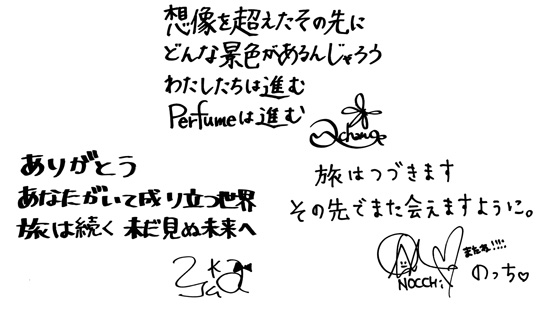 想像を超えたその先に
どんな景色があるんじゃろう
わたしたちは進む
Perfumeは進む
ありがとう
あなたがいて成り立つ世界
旅は続く 未だ見ぬ未来へ
旅はつづきます
その先でまた会えますように。
またね!!!!
NOCCHi
のっち♡